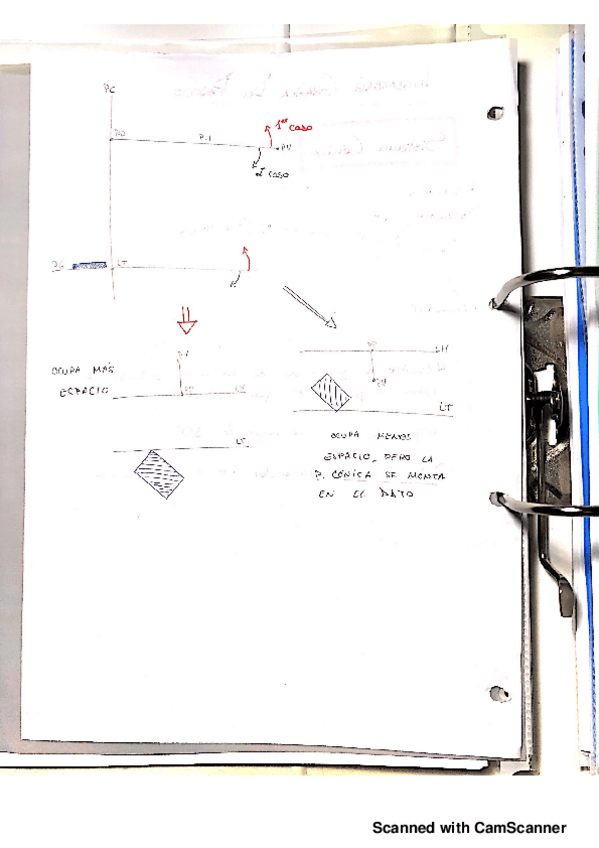 PC
PP
PH
1er CASO
PV
2º CASO
PG
LT
PV
LH
PP
LH
PV
OCUPA MÁS
ESPACIO
LT
LT
OCUPA MENOS
ESPACIO, PERO LA
P. CÓNICA SE MONTA
EN EL DATO
Scanned with CamScanner